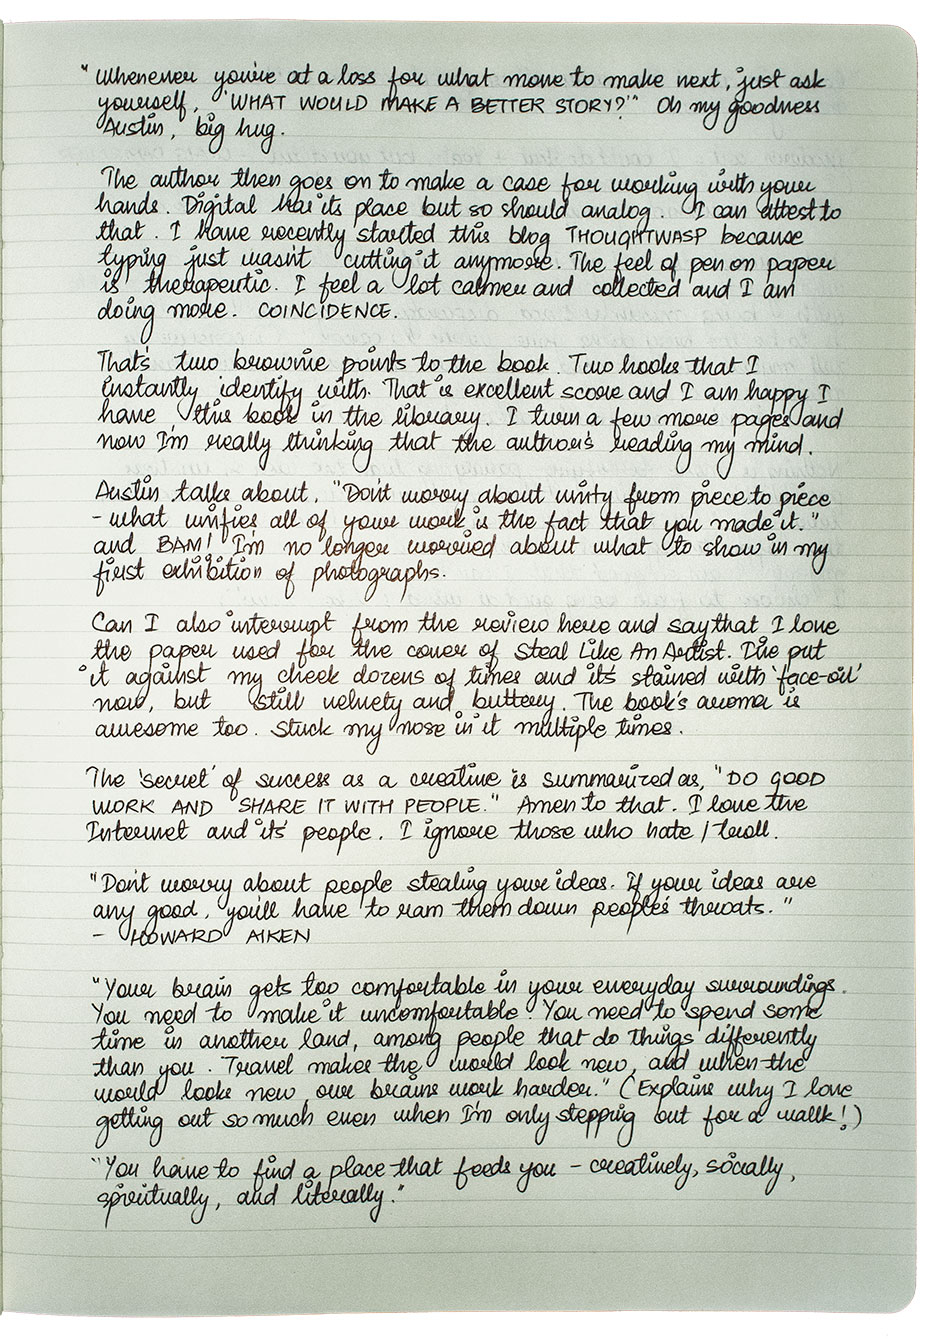 "Whenever you're at a loss for what move to make next, just ask
yourself, 'WHAT WOULD MAKE A BETTER STORY?'" Oh my goodness
Austin, big hug.
The author then goes on to make a case for working with your
hands. Digital has its place but so should analog. I can attest to
that. I have recently started this blog THOUGHTWASP because
typing just wasn't cutting it anymore. The feel of pen on paper
is therapeutic. I feel a lot calmer and collected and I am
doing more. COINCIDENCE.
That's two brownie points to the book. Two hooks that I
instantly identify with. That is excellent score and I am happy I
have this book in the library. I turn a few more pages and
now I'm really thinking that the author's reading my mind.
Austin talks about, "Don't worry about unity from piece to piece
- what unifies all of your work is the fact that you made it."
and BAM! I'm no longer worried about what to show in my
first exhibition of photographs.
Can I also interrupt from the review here and say that I love
the paper used for the cover of Steal Like An Artist. I've put
it against my cheek dozens of times and it's stained with 'face-oil'
now, but still velvety and buttery. The book's aroma is
awesome too. Stuck my nose in it multiple times.
The 'secret' of success as a creative is summarized as, "DO GOOD
WORK AND SHARE IT WITH PEOPLE." Amen to that. I love the
Internet and its' people. I ignore those who hate / troll.
"Don't worry about people stealing your ideas. If your ideas are
any good, you'll have to ram them down people's throats."
- HOWARD AIKEN
"Your brain gets too comfortable in your everyday surroundings.
You need to make it uncomfortable. You need to spend some
time in another land, among people that do things differently
than you. Travel makes the world look new, and when the
world looks new, our brains work harder." (Explains why I love
getting out so much even when I'm only stepping out for a walk!)
"You have to find a place that feeds you - creatively, socially,
spiritually, and literally."